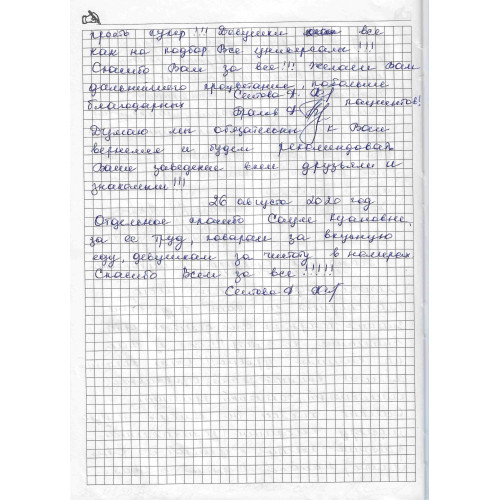 просто супер!!! Девушки все
как на подбор Все универсалы!!!
Спасибо Вам за все!!! Желаем Вам
дальнейшего процветания, побольше
благодарных пациентов!
Сеитова А.
Думаю мы обязательно к Вам
вернемся и будем рекомендовать
Ваше заведение всем друзьям и
знакомым!!!
26 августа 2020 год
Отдельное спасибо Сауле
за ее труд, поварам за вкусную
еду, девушкам за чистоту в номерах
Спасибо Всем за все!!!!!
Сеитова А.